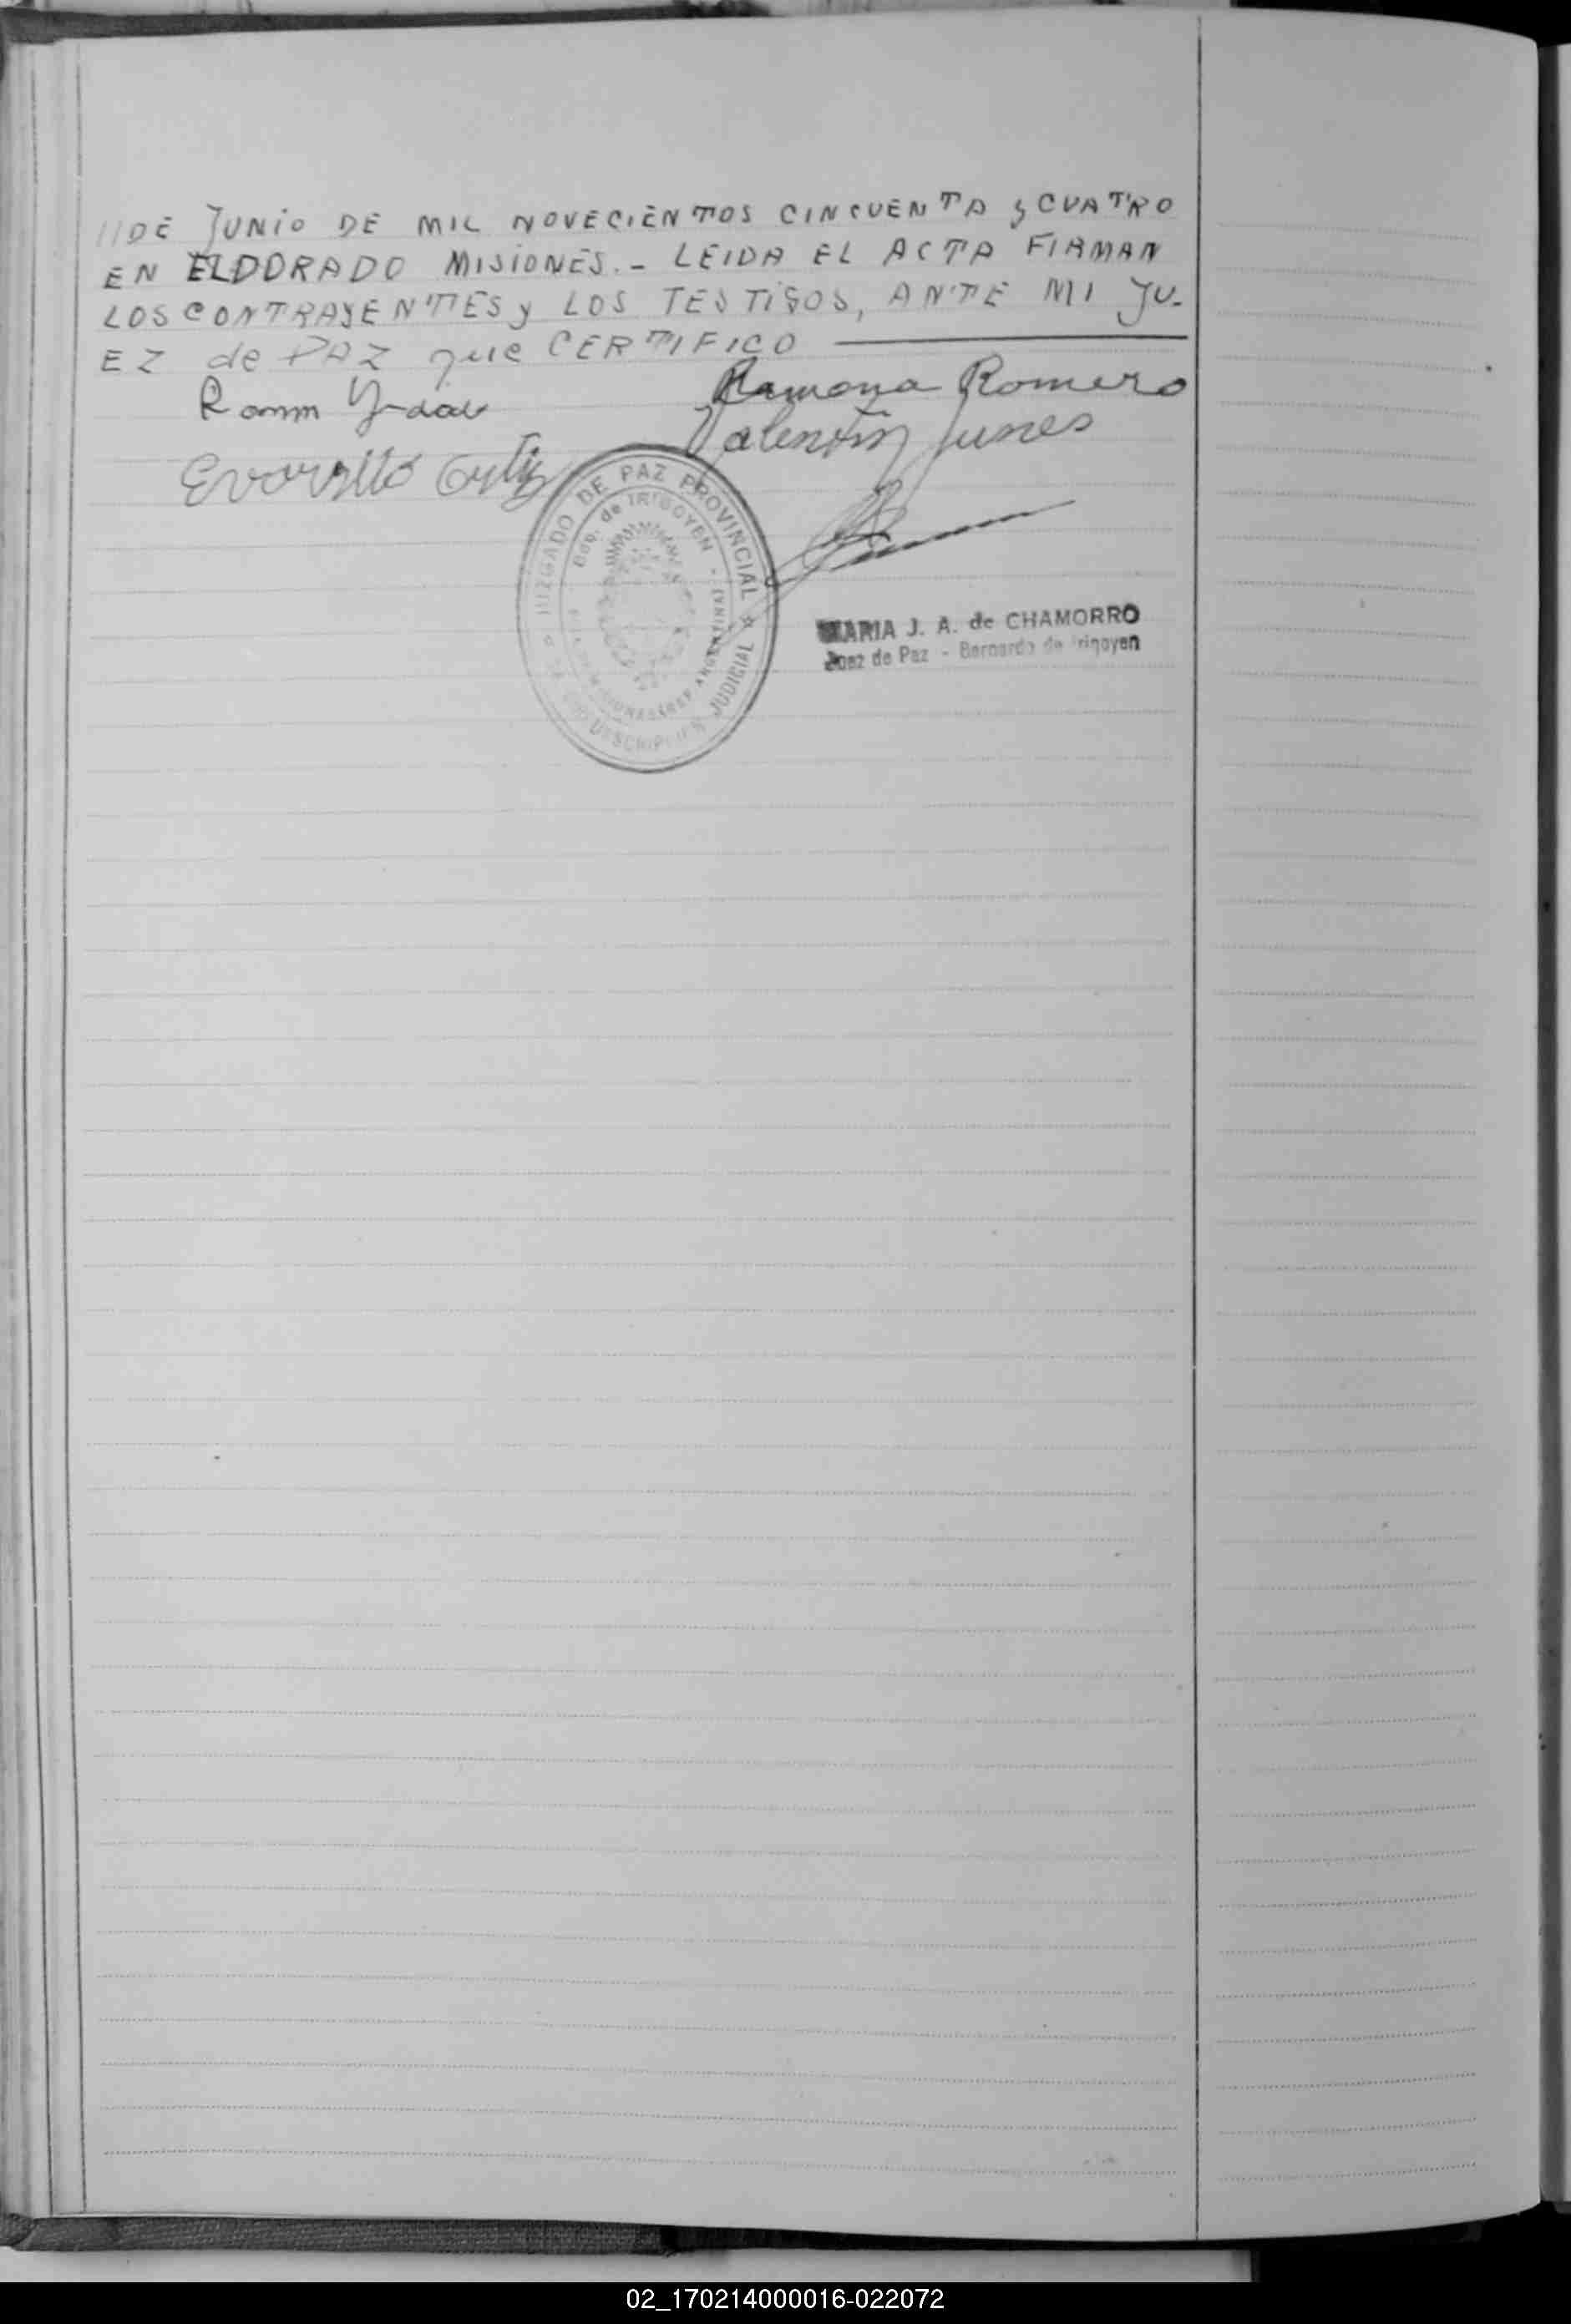 //DE JUNIO DE MIL NOVECIENTOS CINCUENTA y CUATRO
EN ELDORADO MISIONES.- LEIDA EL ACTA FIRMAN
LOS CONTRAYENTES y LOS TESTIGOS, ANTE MI JU-
EZ de PAZ que CERTIFICO
Ramona Romero
Ramon
Valentin
Evaristo
JUZGADO DE PAZ PROVINCIAL
Bdo. de IRIGOYEN
JUDICIAL
MARIA J. A. de CHAMORRO
Juez de Paz - Bernardo de Irigoyen
02_170214000016-022072